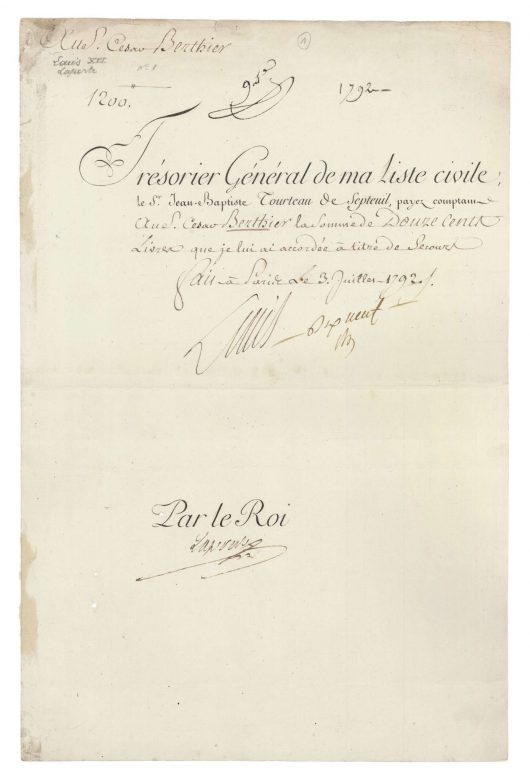 Au S.r Cesar Berthier
①
Louis XVI
Laporte
N° 1
1200.
1792
Trésorier Général de ma Liste civile,
le S.r Jean-Baptiste Tourteau de Septeuil, payez comptant
Au S.r Cesar Berthier la somme de Douze Cents
Livres que je lui ai accordée à titre de Secours
Fait à Paris Le 3. Juillet 1792.
Louis
Par le Roi
Laporte